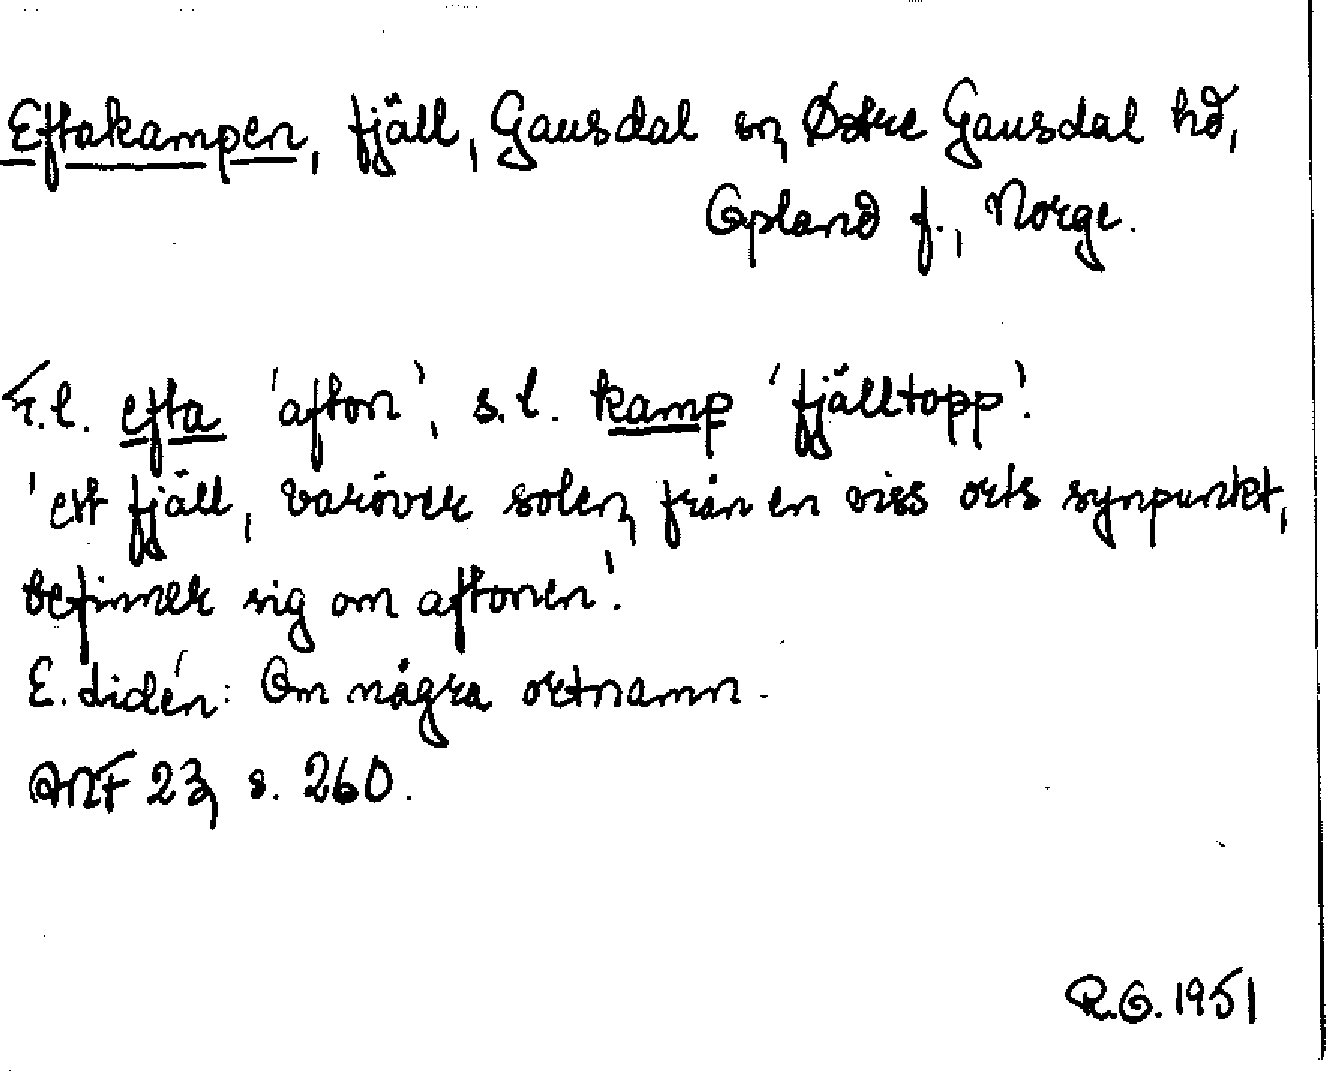 Eftakampen, fjäll, Gausdal sn, Østre Gausdal hd,
Opland f., Norge.
F.l. efta 'afton', s.l. kamp 'fjälltopp'.
'ett fjäll, varöver solen, från en viss orts synpunkt,
befinner sig om aftonen'.
E. Lidén: Om några ortnamn.
ANF 23, s. 260.
R.O. 1951